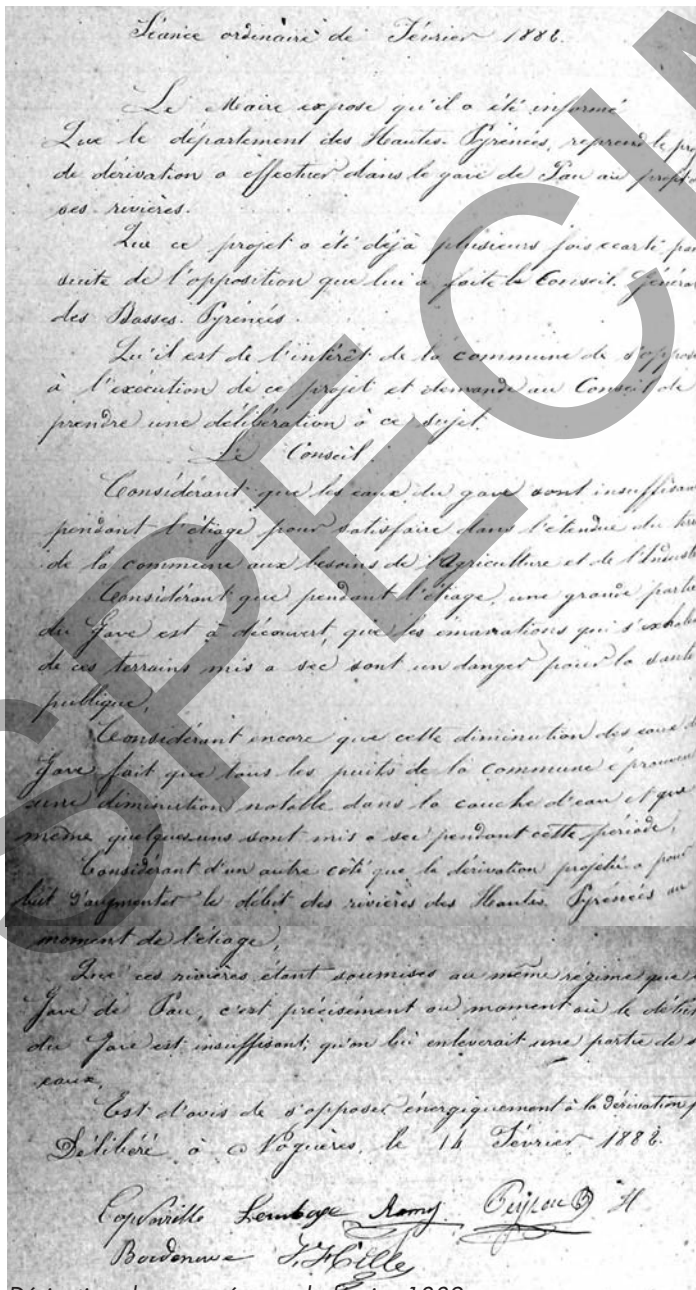 Séance ordinaire de Février 1882.
Le Maire expose qu'il a été informé
Que le département des Hautes-Pyrénées, reprend le
de dérivation a effectuer dans le gave de Pau au profit
ses rivières.
Que ce projet a été déjà plusieurs fois ecarté par
suite de l'opposition que lui a faite le Conseil Général
des Basses-Pyrénées.
Qu'il est de l'intérêt de la commune de s'oppose
à l'exécution de ce projet et demande au Conseil de
prendre une délibération à ce sujet.
Le Conseil
Considérant que les eaux du gave sont insuffisan
pendant l'étiage pour satisfaire dans l'étendue du
de la commune aux besoins de l'Agriculture et de l'Indust
Considérant que pendant l'étiage, une grande partie
du Gave est à découvert, que les émanations qui s'exhal
de ces terrains mis a sec sont un danger pour la santé
publique,
Considérant encore que cette diminution des eaux d
Gave fait que tous les puits de la commune éprouven
une diminution notable dans la couche d'eau et que
même quelques uns sont mis a sec pendant cette période,
Considérant d'un autre côté que la dérivation projetée a pour
but d'augmenter le débit des rivières des Hautes Pyrénées au
moment de l'étiage,
Que ces rivières étant soumises au même régime que
Gave de Pau, c'est précisément au moment où le débit
du Gave est insuffisant, qu'on lui enleverait une partie de s
eaux,
Est d'avis de s'opposer énergiquement à la dérivation p
Délibéré à Noguères, le 14 Février 1882.
Bordenave
SPECIM